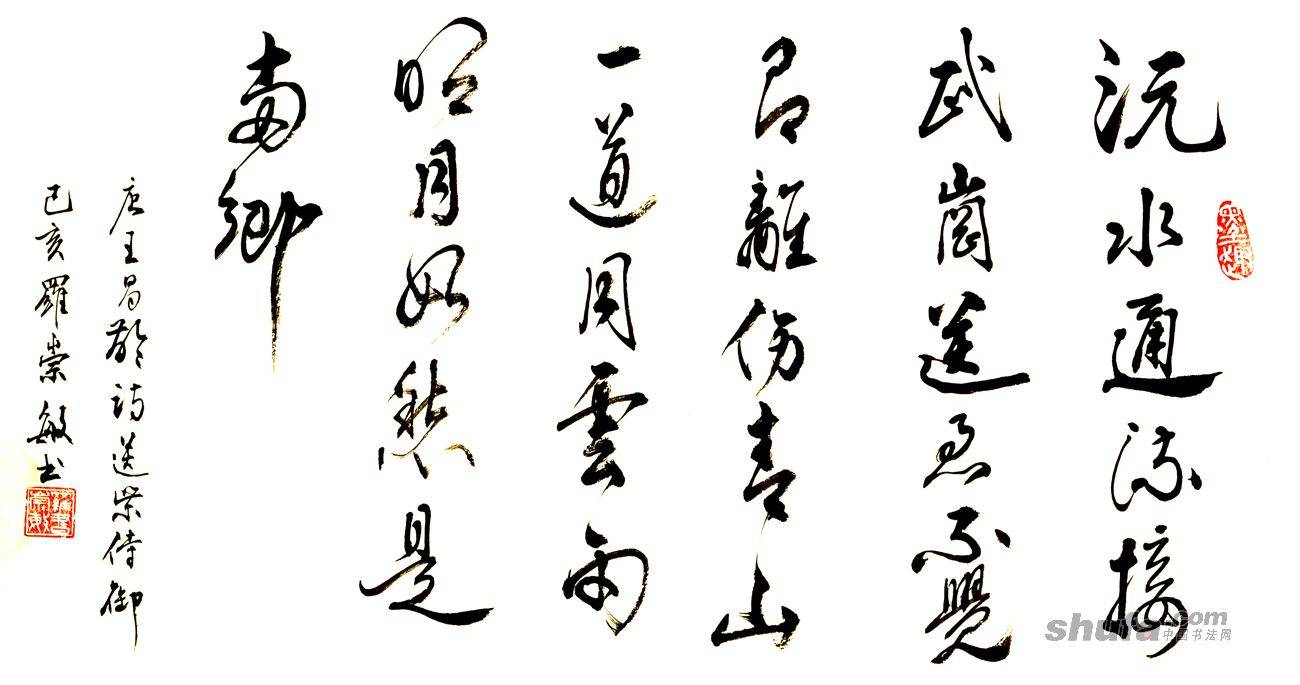 沅水通流接
武崗送君不覺
有離伤青山
一道同雲雨
明月何曾是
兩鄉
唐王昌齡詩送柴侍御
己亥羅崇敏书
shufa.com
中国书法网